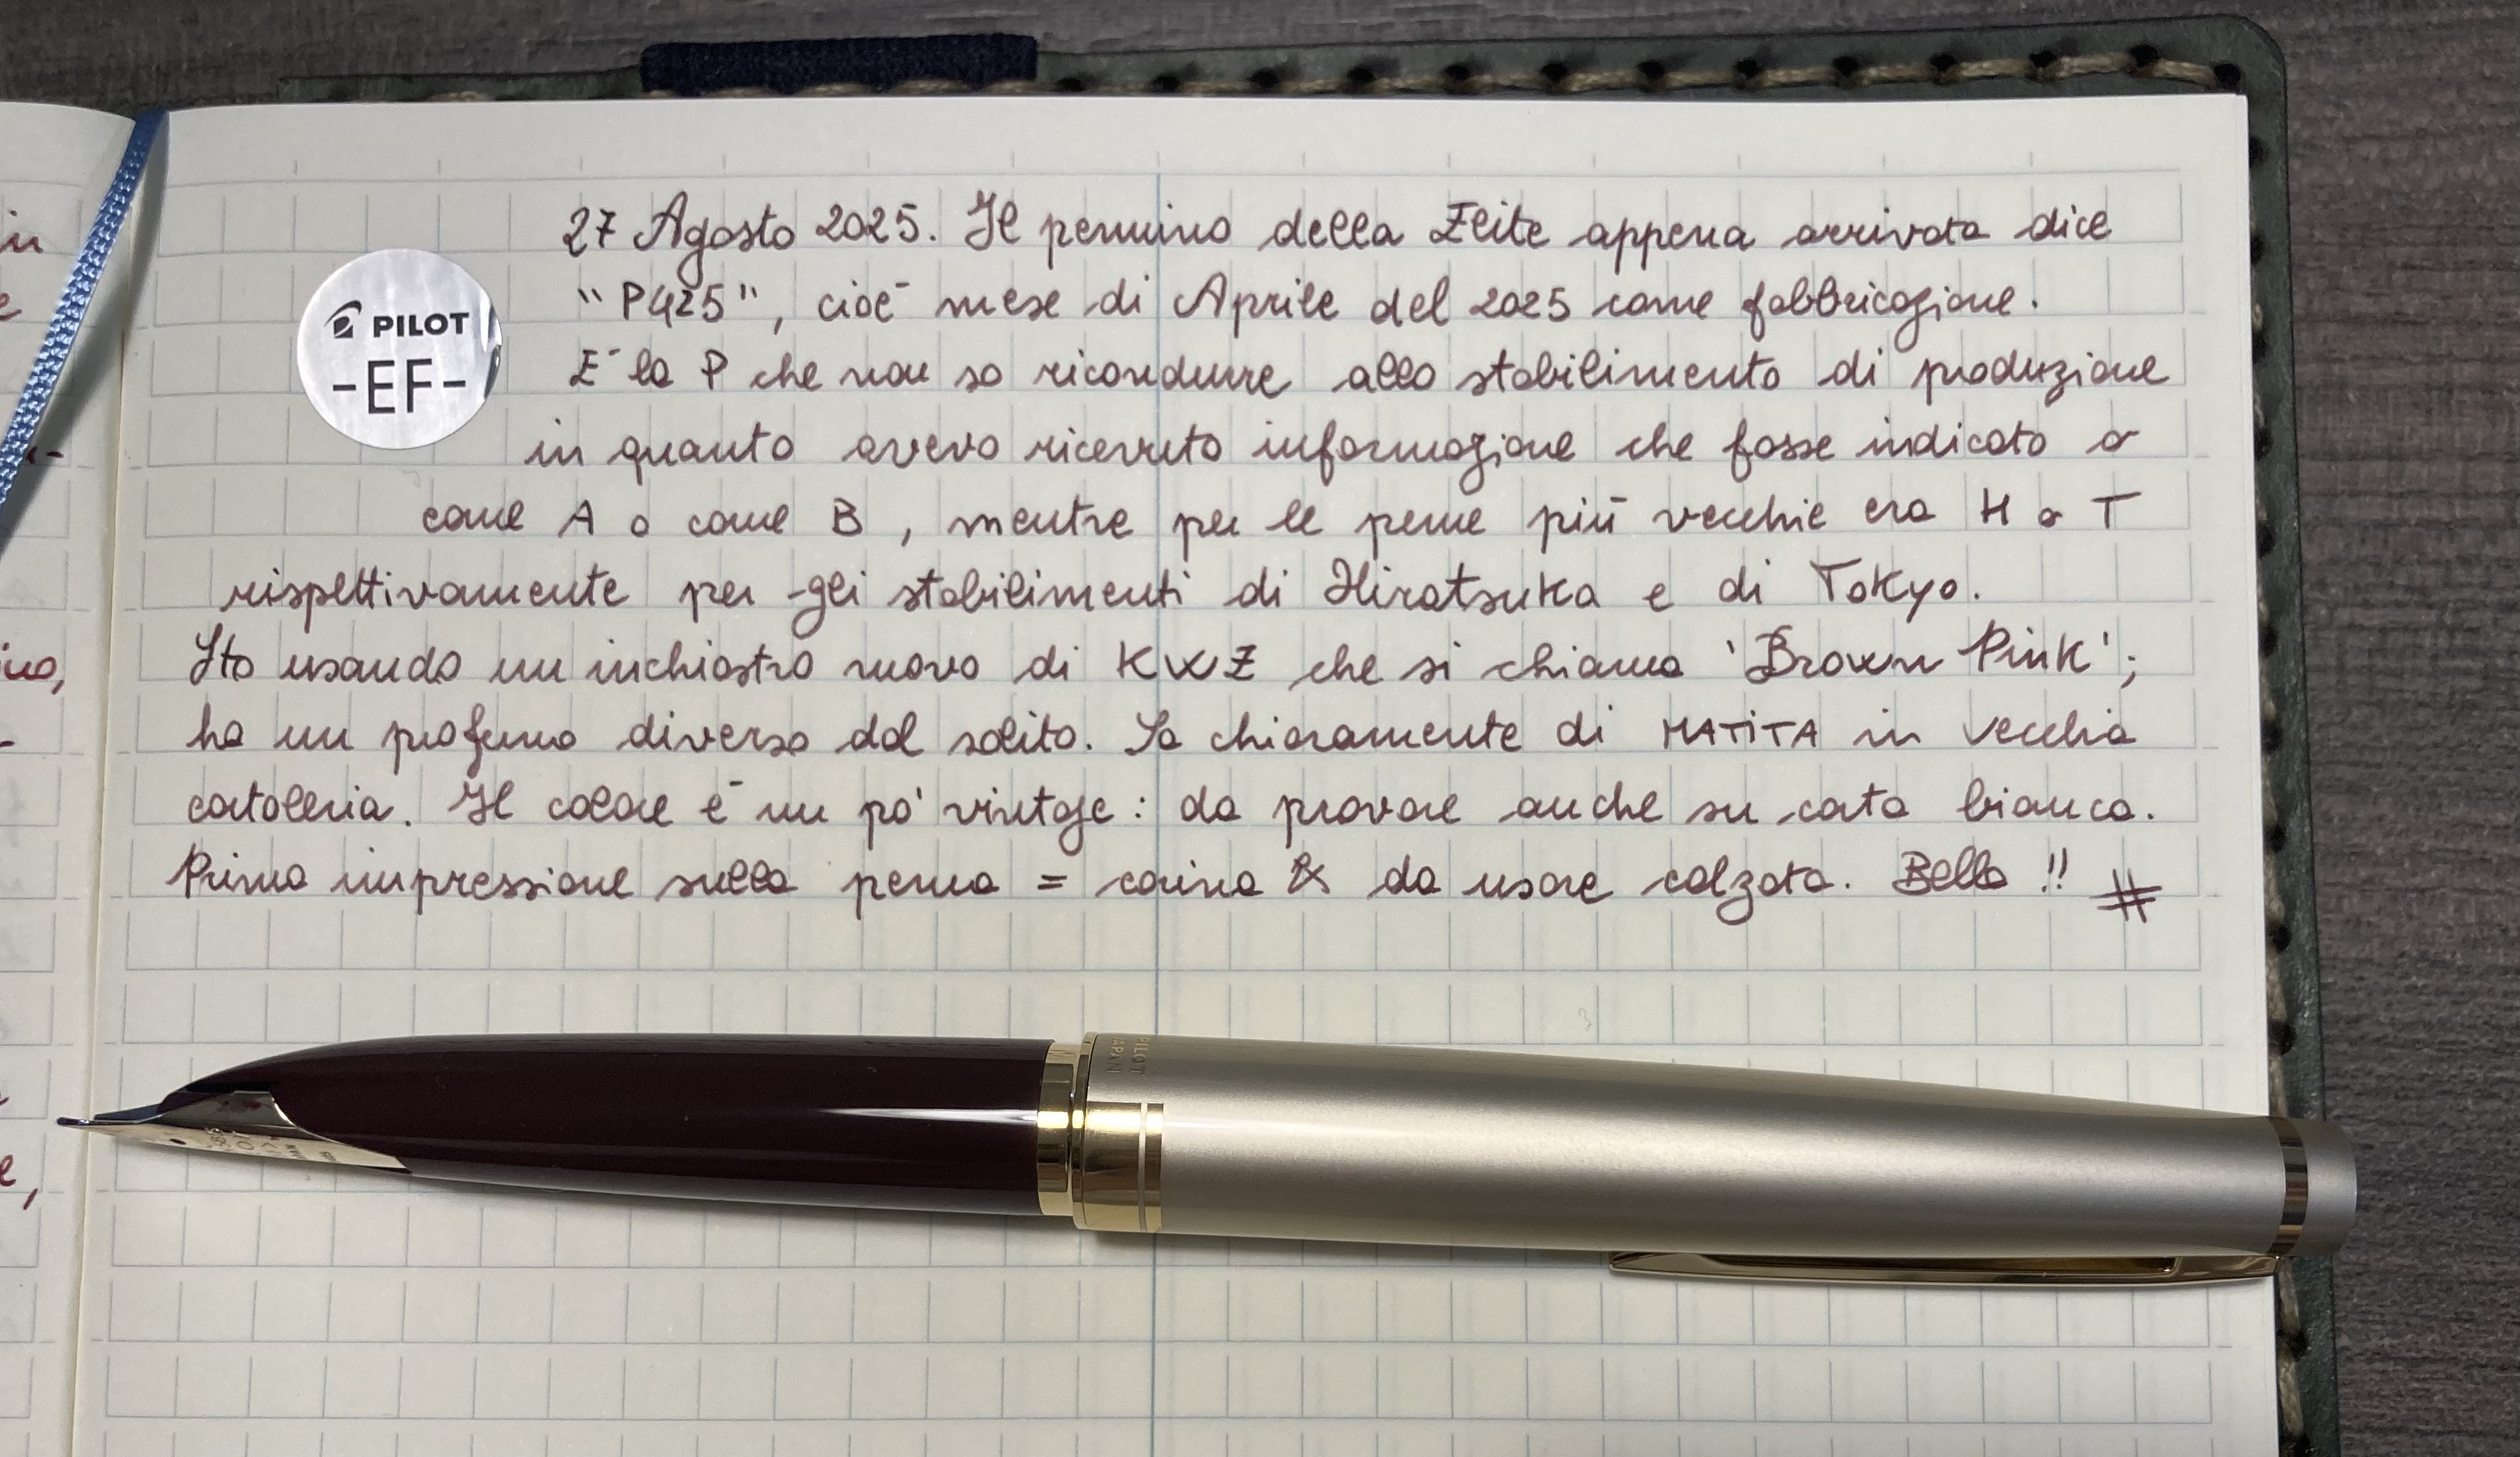 27 Agosto 2025. Il pennino della Elite appena arrivata dice
"P425", cioè mese di Aprile del 2025 come fabbricazione.
PILOT
-EF-
E' la P che non so ricondurre allo stabilimento di produzione
in quanto avevo ricevuto informazione che fosse indicato o
come A o come B, mentre per le penne più vecchie era H o T
rispettivamente per gli stabilimenti di Hiratsuka e di Tokyo.
Sto usando un inchiostro nuovo di KWZ che si chiama 'Brown Pink';
ha un profumo diverso dal solito. Sa chiaramente di MATITA in vecchia
cartoleria. Il colore è un po' vintage: da provare anche su carta bianca.
Prima impressione sulla penna = carina & da usare calzata. Bella !! #
PILOT
JAPAN